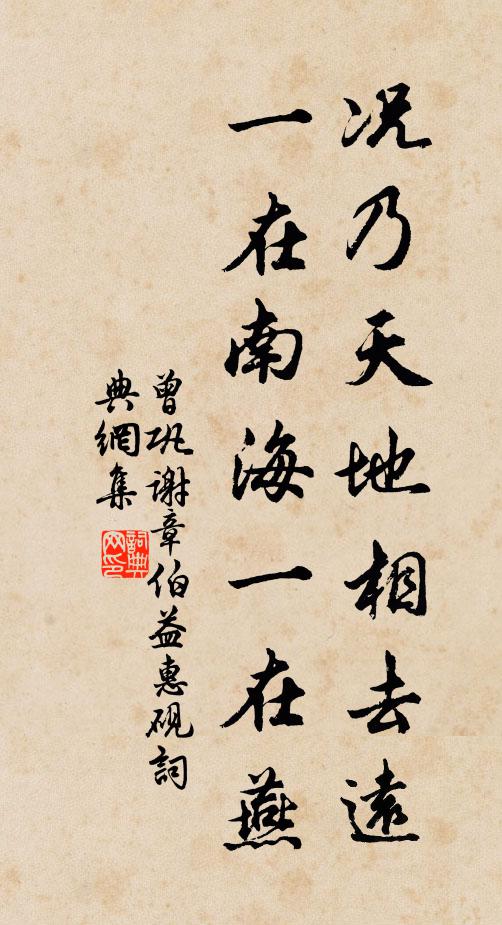 况乃天地相去遠
一在南海一在燕
曾巩谢章伯益惠硯詞
典網集
詞典
网印